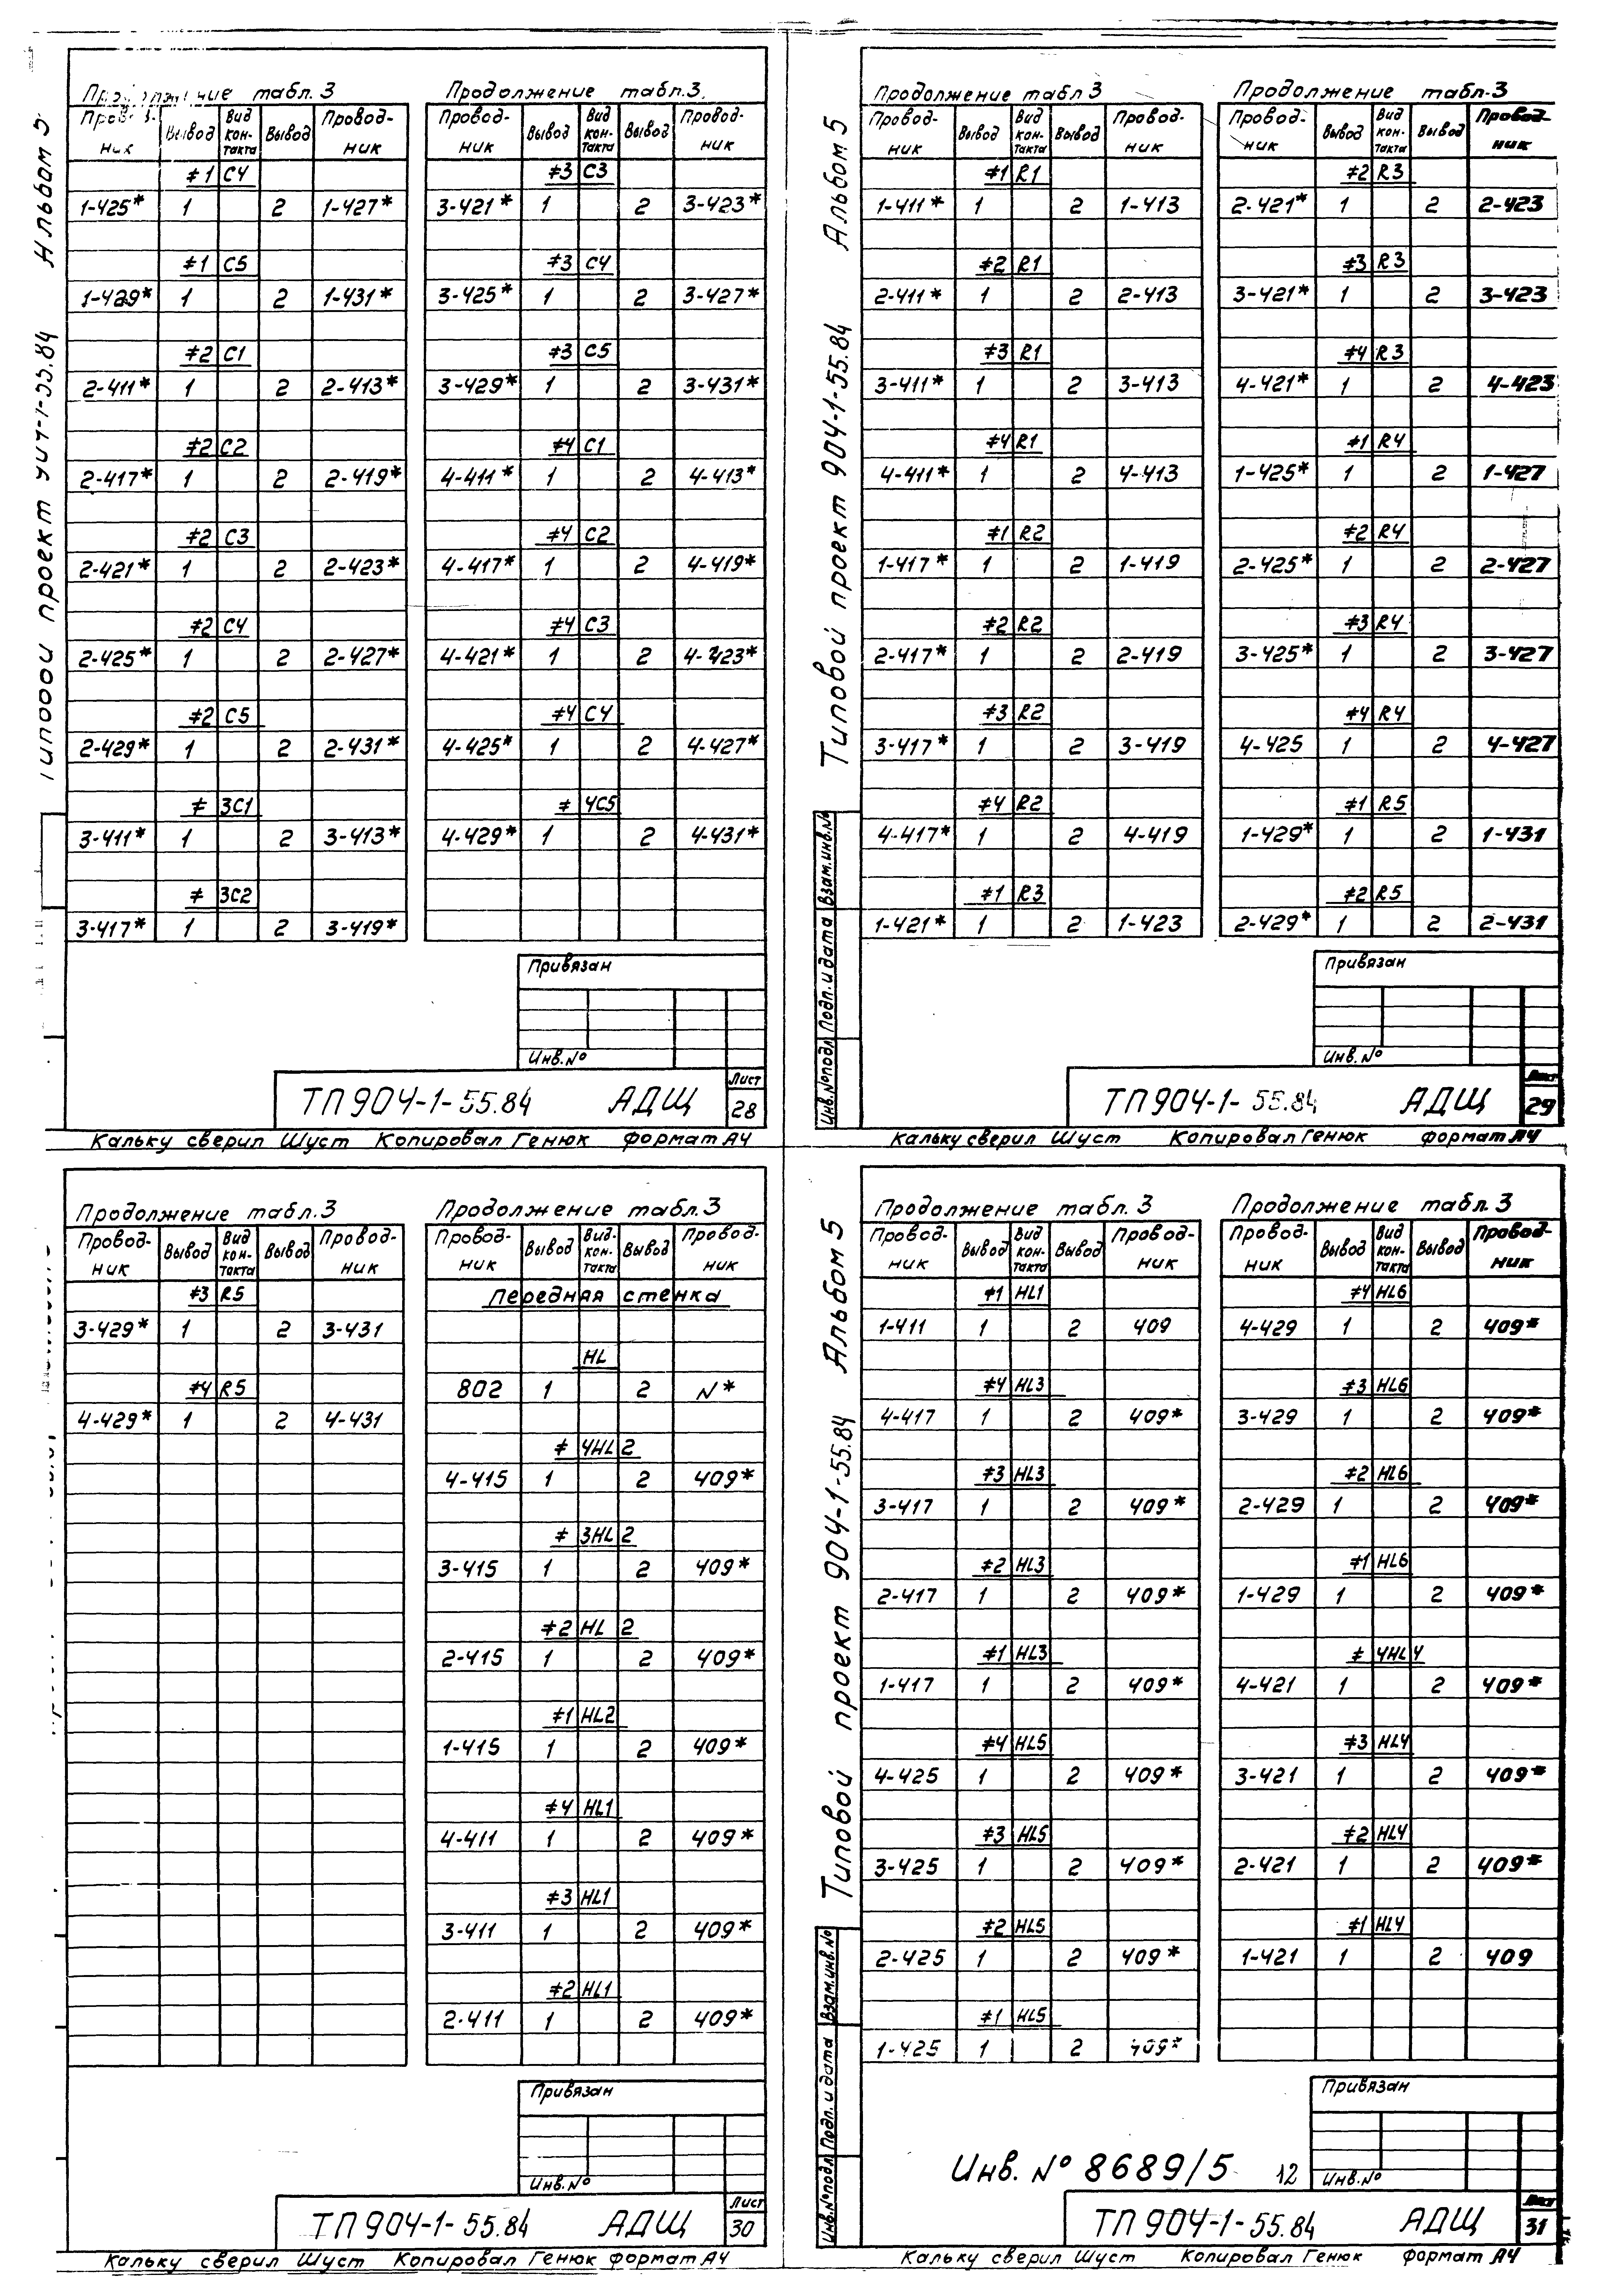 Альбом 5
проект 904-1-55.84
Продолжение табл. 3
Провод-ник Вывод Вид кон-такта Вывод Провод-ник
≠1 С4
1-425* 1 2 1-427*
≠1 С5
1-429* 1 2 1-431*
≠2 С1
2-411* 1 2 2-413*
≠2 С2
2-417* 1 2 2-419*
≠2 С3
2-421* 1 2 2-423*
≠2 С4
2-425* 1 2 2-427*
≠2 С5
2-429* 1 2 2-431*
≠ 3С1
3-411* 1 2 3-413*
≠ 3С2
3-417* 1 2 3-419*
Продолжение табл.3.
Провод-ник Вывод Вид кон-такта Вывод Провод-ник
≠3 С3
3-421* 1 2 3-423*
≠3 С4
3-425* 1 2 3-427*
≠3 С5
3-429* 1 2 3-431*
≠4 С1
4-411* 1 2 4-413*
≠4 С2
4-417* 1 2 4-419*
≠4 С3
4-421* 1 2 4-423*
≠4 С4
4-425* 1 2 4-427*
≠ 4С5
4-429* 1 2 4-431*
Привязан
Инв.№
ТП904-1-55.84 АДЩ
Лист
28
Кальку сверил Шуст Копировал Генюк формат А4
Типовой проект 904-1-55.84 Альбом 5
Инв.№подл Подп. и дата Взам.инв.№
Продолжение табл 3
Провод-ник Вывод Вид кон-такта Вывод Провод-ник
≠1 R1
1-411* 1 2 1-413
≠2 R1
2-411* 1 2 2-413
≠3 R1
3-411* 1 2 3-413
≠4 R1
4-411* 1 2 4-413
≠1 R2
1-417* 1 2 1-419
≠2 R2
2-417* 1 2 2-419
≠3 R2
3-417* 1 2 3-419
≠4 R2
4-417* 1 2 4-419
≠1 R3
1-421* 1 2 1-423
Продолжение табл.3
Провод-ник Вывод Вид кон-такта Вывод Провод-ник
≠2 R3
2-421* 1 2 2-423
≠3 R3
3-421* 1 2 3-423
≠4 R3
4-421* 1 2 4-423
≠1 R4
1-425* 1 2 1-427
≠2 R4
2-425* 1 2 2-427
≠3 R4
3-425* 1 2 3-427
≠4 R4
4-425 1 2 4-427
≠1 R5
1-429* 1 2 1-431
≠2 R5
2-429* 1 2 2-431
Привязан
Инв.№
ТП904-1-55.84 АДЩ
Лист
29
Кальку сверил Шуст Копировал Генюк формат А4
Продолжение табл.3
Провод-ник Вывод Вид кон-такта Вывод Провод-ник
≠3 R5
3-429* 1 2 3-431
≠4 R5
4-429* 1 2 4-431
Продолжение табл.3
Провод-ник Вывод Вид-кон-такта Вывод Провод-ник
Передняя стенка
HL
802 1 2 N*
≠ 4HL2
4-415 1 2 409*
≠ 3HL2
3-415 1 2 409*
≠2 HL 2
2-415 1 2 409*
≠1 HL2
1-415 1 2 409*
≠4 HL1
4-411 1 2 409*
≠3 HL1
3-411 1 2 409*
≠2 HL1
2-411 1 2 409*
Привязан
Инв.№
ТП904-1-55.84 АДЩ
Лист
30
Кальку сверил Шуст Копировал Генюк формат А4
Типовой проект 904-1-55.84 Альбом 5
Инв.№подл Подп. и дата Взам.инв.№
Продолжение табл.3
Провод-ник Вывод Вид кон-такта Вывод Провод-ник
≠1 HL1
1-411 1 2 409
≠4 HL3
4-417 1 2 409*
≠3 HL3
3-417 1 2 409*
≠2 HL3
2-417 1 2 409*
≠1 HL3
1-417 1 2 409*
≠4 HL5
4-425 1 2 409*
≠3 HL5
3-425 1 2 409*
≠2 HL5
2-425 1 2 409*
≠1 HL5
1-425 1 2 409*
Продолжение табл.3
Провод-ник Вывод Вид кон-такта Вывод Провод-ник
≠4 HL6
4-429 1 2 409*
≠3 HL6
3-429 1 2 409*
≠2 HL6
2-429 1 2 409*
≠1 HL6
1-429 1 2 409*
≠ 4HL4
4-421 1 2 409*
≠3 HL4
3-421 1 2 409*
≠2 HL4
2-421 1 2 409*
≠1 HL4
1-421 1 2 409
Привязан
Инв.№
Инв. № 8689/5 12
ТП904-1-55.84 АДЩ
Лист
31
Кальку сверил Шуст Копировал Генюк формат А4